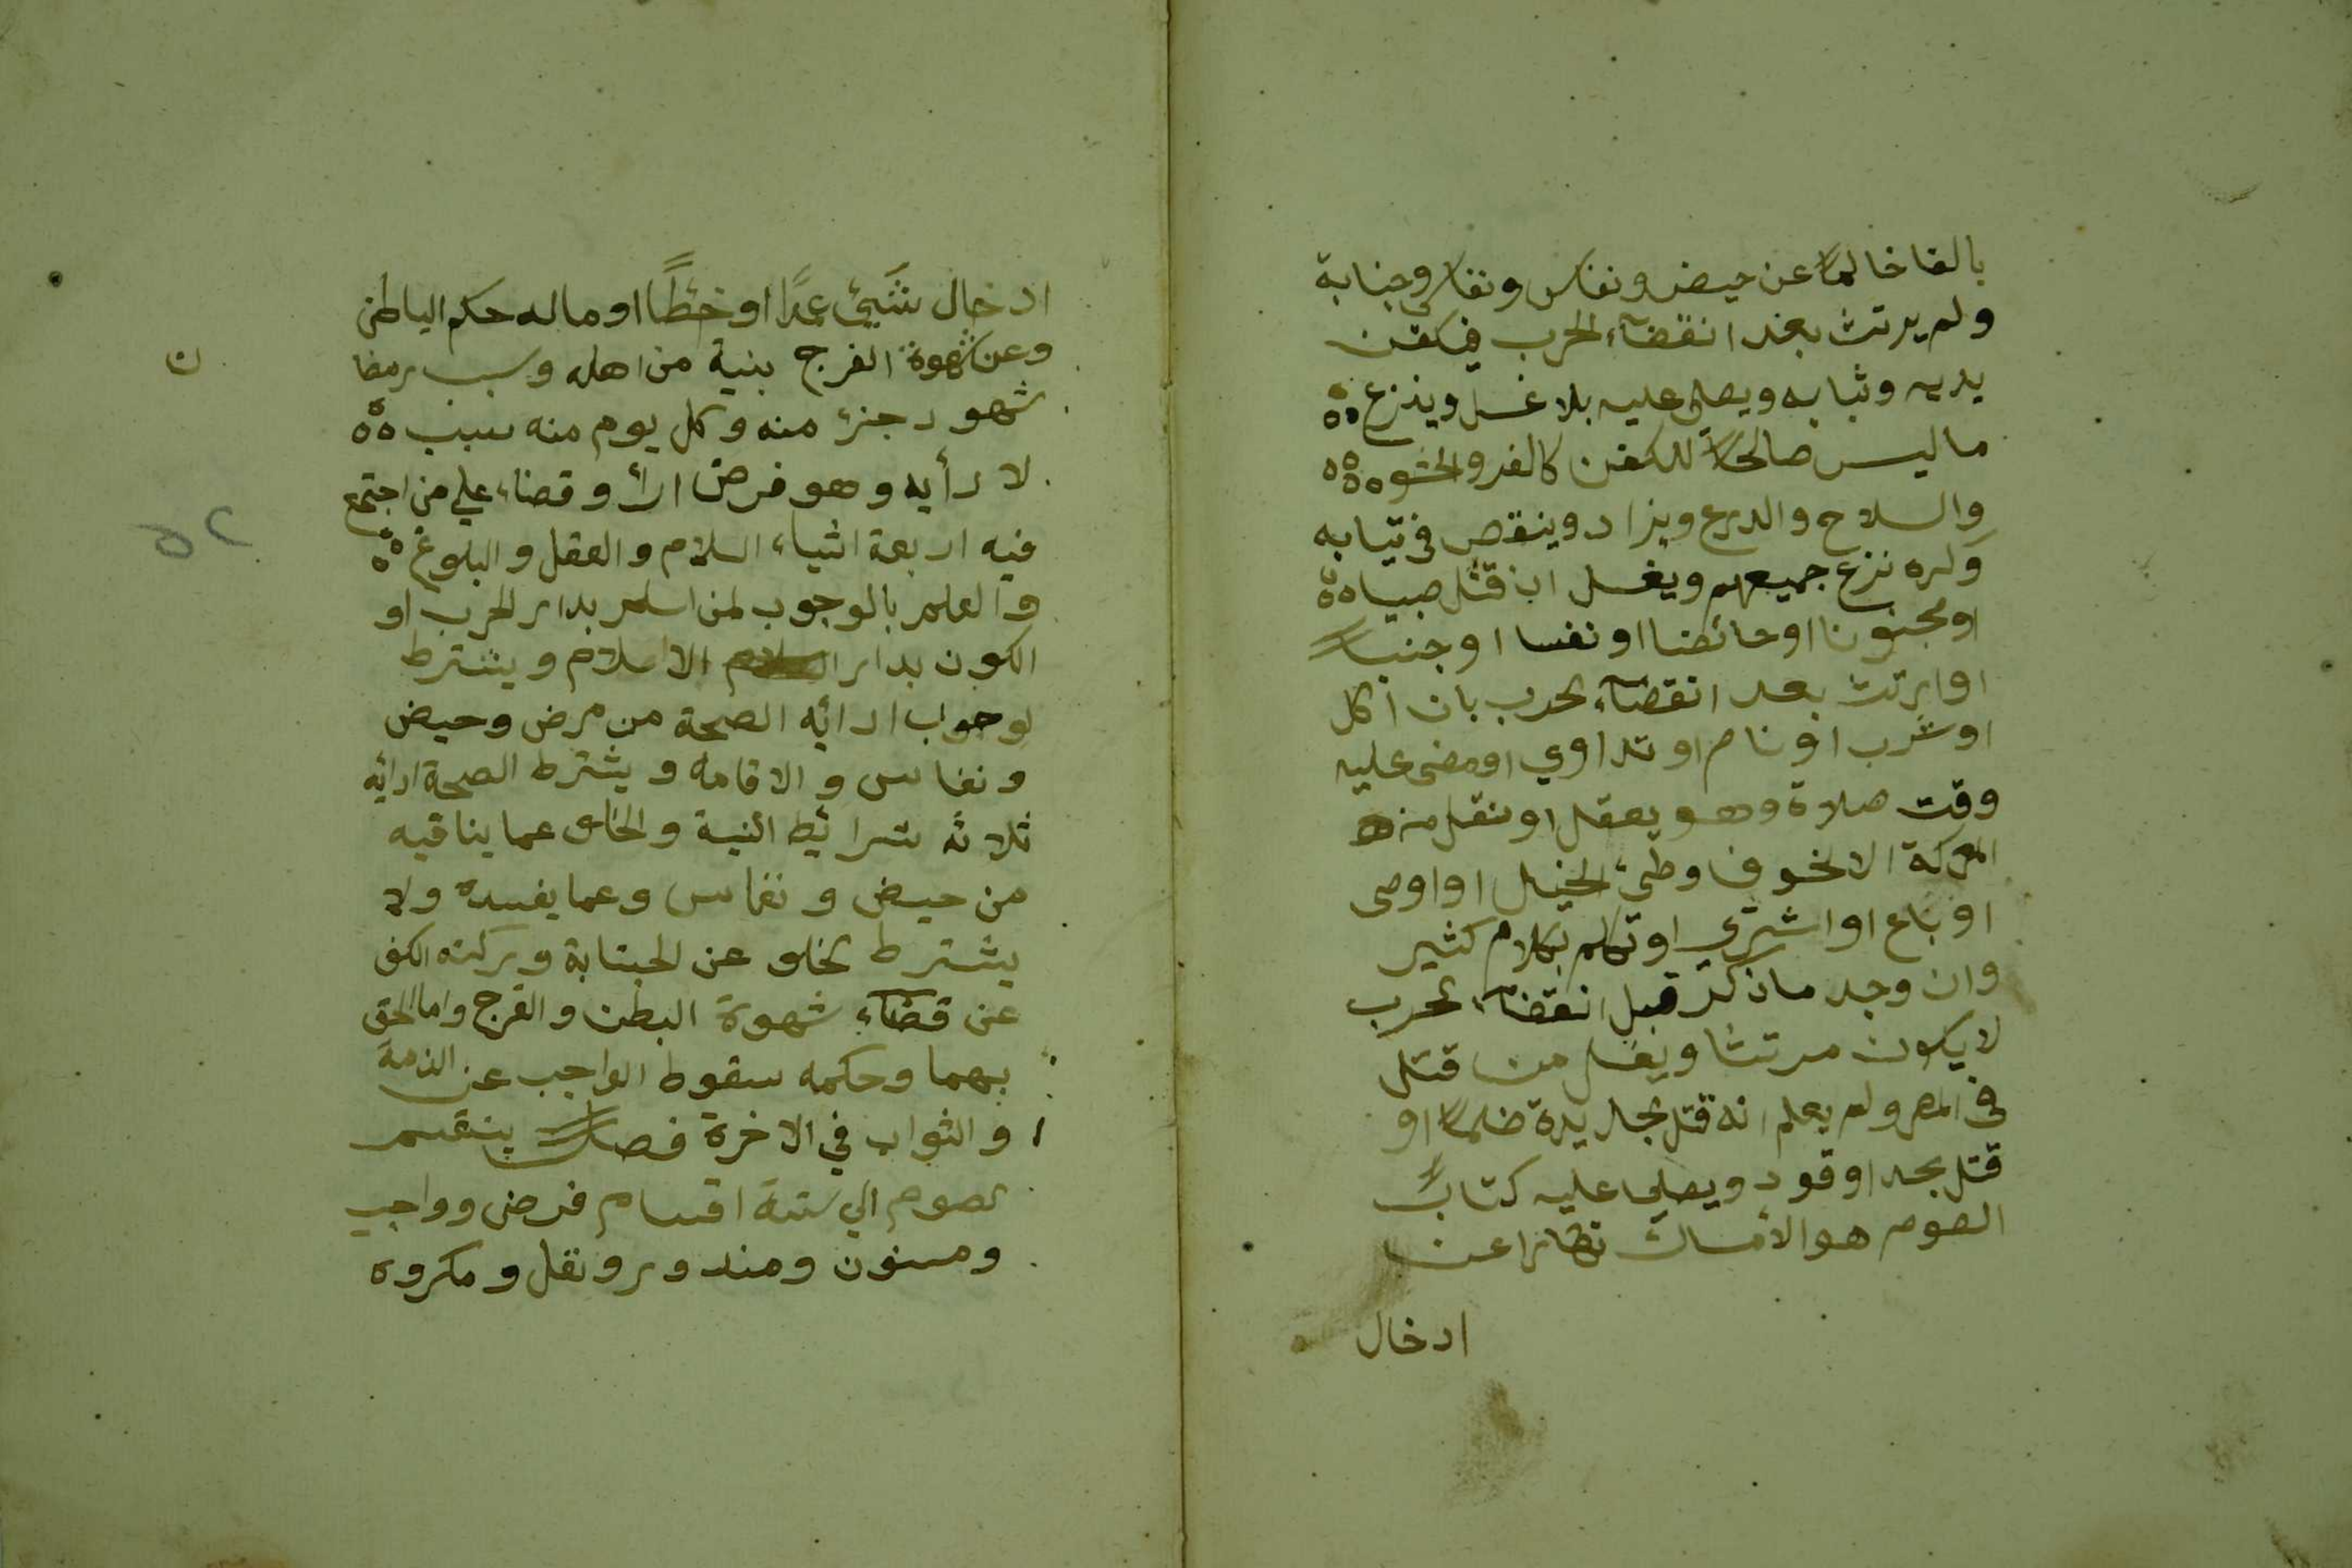 بالغا خاليا عن حيض ونفاس ونفاس وجنابة
ولم يرتث بعد انقضآء الحرب فيكفن
بدمه وثيابه ويصلى عليه بلا غسل وينزع
ما ليس صالحا للكفن كالفرو والحشو
والسلاح والدرع ويزاد وينقص في ثيابه
وكره نزع جميعهم ويغسل ان قتل صبيا
او مجنونا او حائضا او نفسا او جنبا
او ارتث بعد انقضآء الحرب بان اكل
او شرب او نام او تداوي او مضى عليه
وقت صلاة وهو يعقل او نقل من
المعركة الا لخوف وطئ الخيل او اوصى
او باع او اشتري او تكلم بكلام كثير
وان وجد ما ذكر قبل انقضآء الحرب
لا يكون مرتثا ويغسل من قتل
في المصر ولم يعلم انه قتل بحديدة ظلما او
قتل بحد او قود ويصلي عليه كتاب
الصوم هو الأمساك نهارا عن
ادخال
ادخال شيئ عمدًا او خطًأ او ماله حكم الباطن
وعن شهوة الفرج بنية من اهله وسبب رمضا
ن
شهود جزء منه وكل يوم منه سبب
لادأيه وهو فرض ادأ وقضاء علي من اجتمع
فيه اربعة اشياء السلام والعقل والبلوغ
والعلم بالوجوب لمن اسلم بدار الحرب او
الكون بدار الاسلام ويشترط
لوجواب ادائه الصحة من مرض وحيض
ونفاس والاقامة ويشترط الصحة ادائه
ثلاثه شرائط النية والخلو عما ينافيه
من حيض ونفاس وعما يفسده ولا
يشترط الخلو عن الجنابة وركنه الكف
عن قضآء شهوة البطن والفرج وما الحق
بهما وحكمه سقوط الواجب عن الذمة
والثواب في الاخرة فصل ينقسم
الصوم الي ستة اقسام فرض وواجب
ومسنون ومندوب ونفل ومكروه